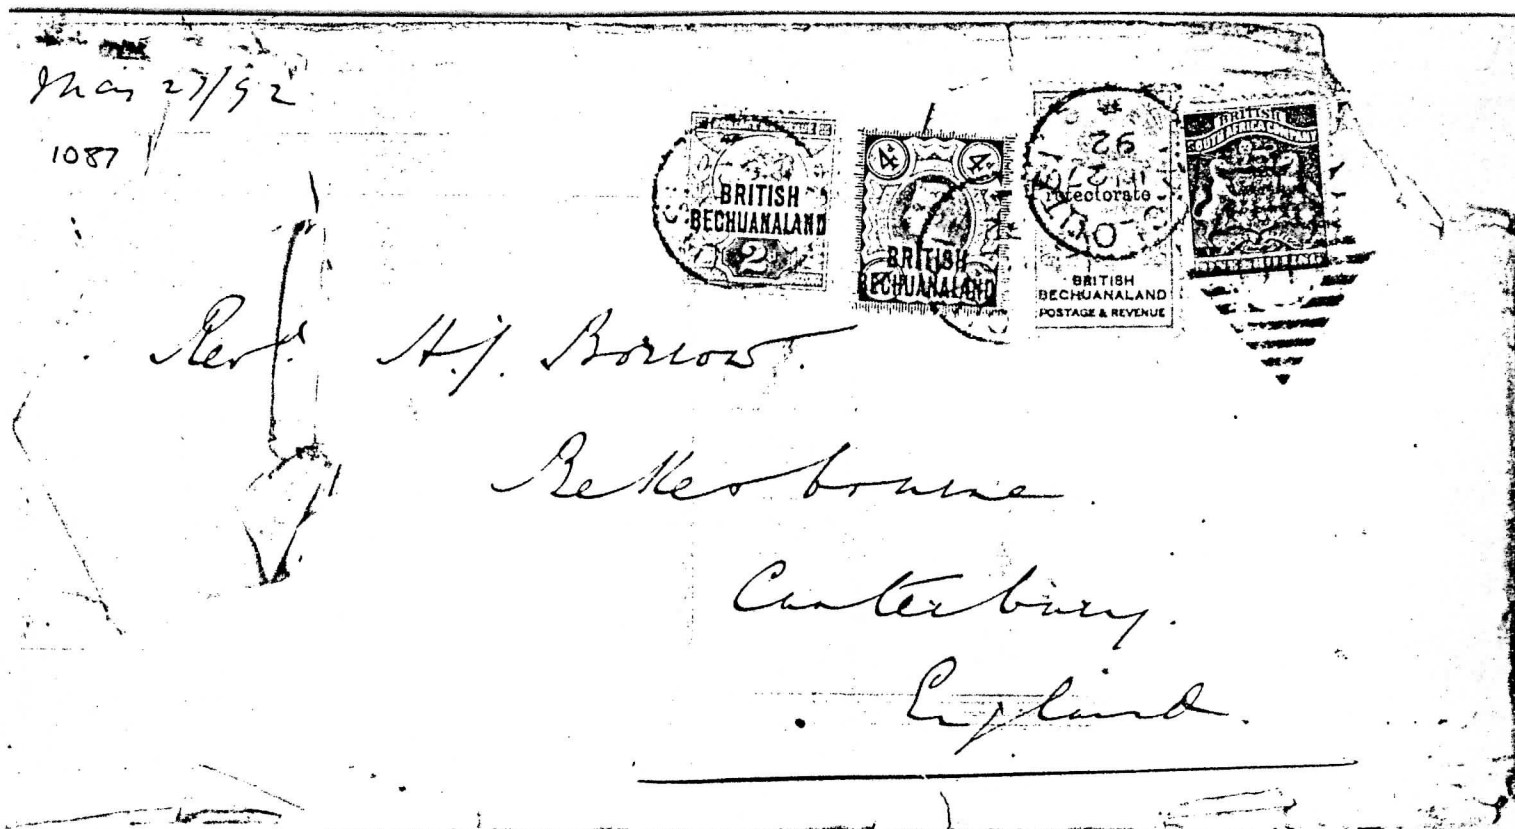 Mar 27/92
1087
BRITISH
BECHUANALAND
2
4d 4d
BRITISH
BECHUANALAND
92
27
Protectorate
BRITISH
BECHUANALAND
POSTAGE & REVENUE
BRITISH
SOUTH AFRICA COMPANY
ONE SHILLING
Revd. H.J. Borrow.
Bekesbourne.
Canterbury.
England.